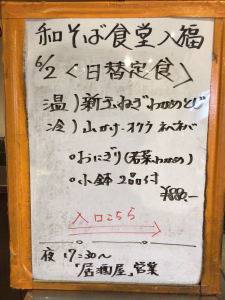 和そば食堂入福
6/2〈日替定食〉
温）新玉ねぎわかめとじ
冷）山かけ・オクラねばねば
○おにぎり（若菜わかめ）
○小鉢2品付
入口こちら
夜17:30〜
「居酒屋」営業